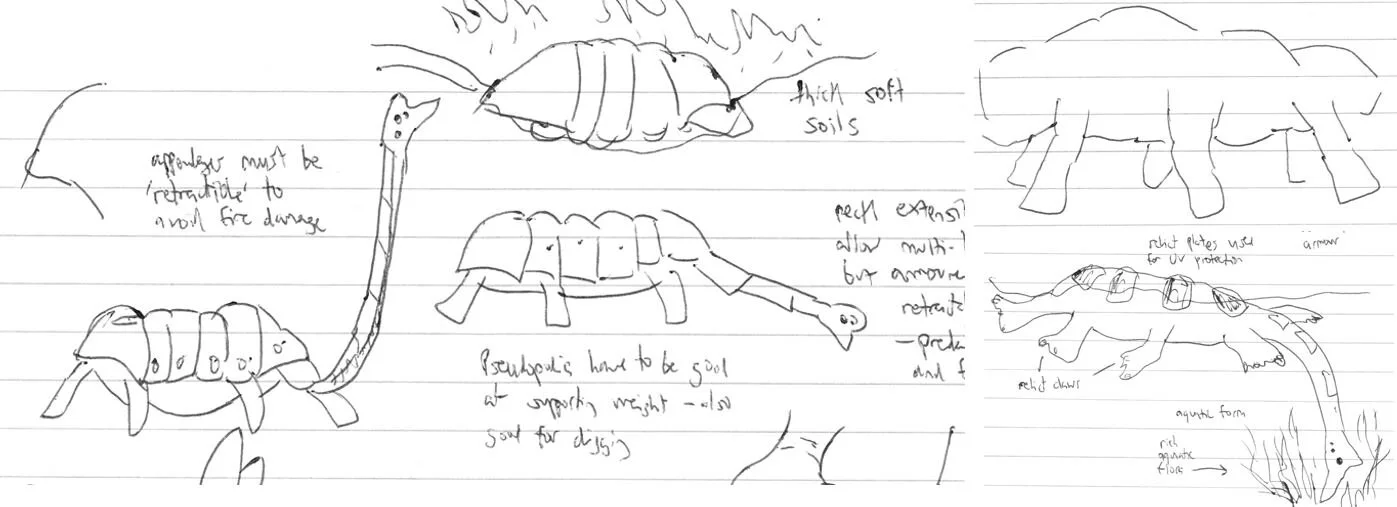 thick soft
soils
appendages must be
'retractible' to
avoid fire damage
neck extensi
allow multi-
but armoure
retracta
-preda
and f
Pseudopodia have to be good
at supporting weight - also
good for digging
relict plates used
for UV protection
"armour"
relict claws
aquatic form
rich
aquatic
flora